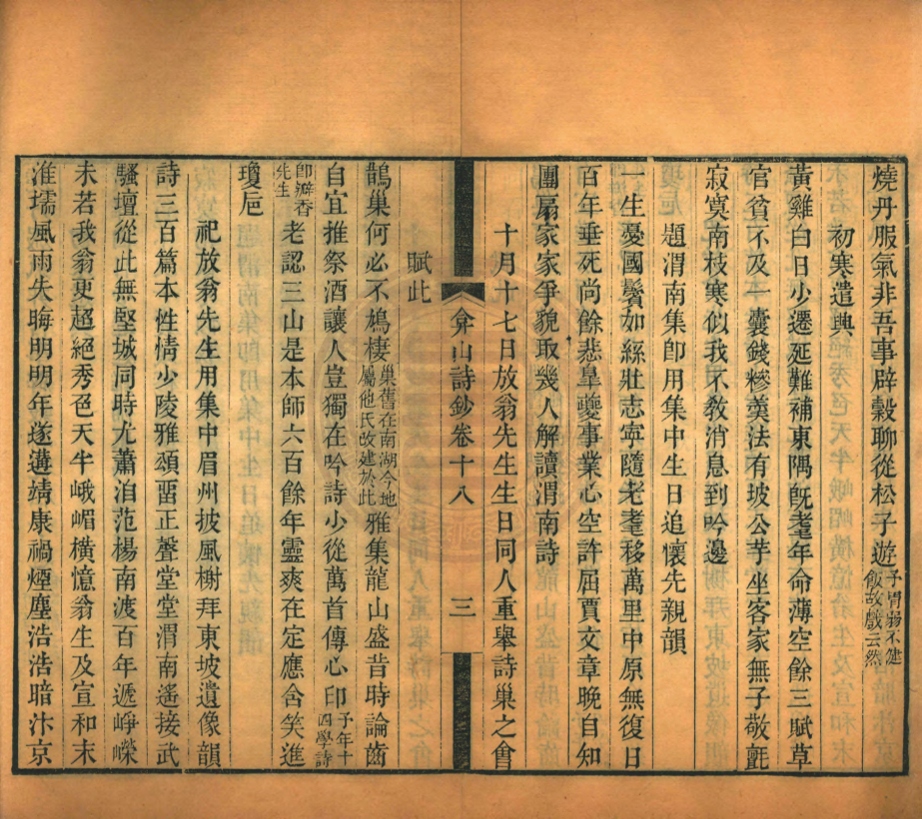 燒丹服氣非吾事辟穀聊從松子遊予胃弱不健飯故戲云然
初寒遣興
黃雞白日少遷延難補東隅旣耄年命薄空餘三賦草
官貧不及一囊錢糝羹法有坡公芋坐客家無子敬氈
寂寞南枝寒似我不敎消息到吟邊
題渭南集卽用集中生日追懷先親韻
一生憂國鬢如絲壯志寧隨老耄移萬里中原無復日
百年垂死尚餘悲臯夔事業心空許屈賈文章晚自知
團扇家家爭貌取幾人解讀渭南詩
十月十七日放翁先生生日同人重舉詩巢之會
弁山詩鈔卷十八
三
賦此
鵲巢何必不鳩棲巢舊在南湖今地屬他氏改建於此雅集龍山盛昔時論齒
自宜推祭酒讓人豈獨在吟詩少從萬首傳心印予年十四學詩
卽瓣香先生老認三山是本師六百餘年靈爽在定應含笑進
瓊卮
祀放翁先生用集中眉州披風榭拜東坡遺像韻
詩三百篇本性情少陵雅頌畱正聲堂堂渭南遙接武
騷壇從此無堅城同時尤蕭洎范楊南渡百年遞崢嶸
未若我翁更超絕秀色天半峨嵋橫憶翁生及宣和末
淮壖風雨失晦明明年遂遘靖康禍煙塵浩浩暗汴京